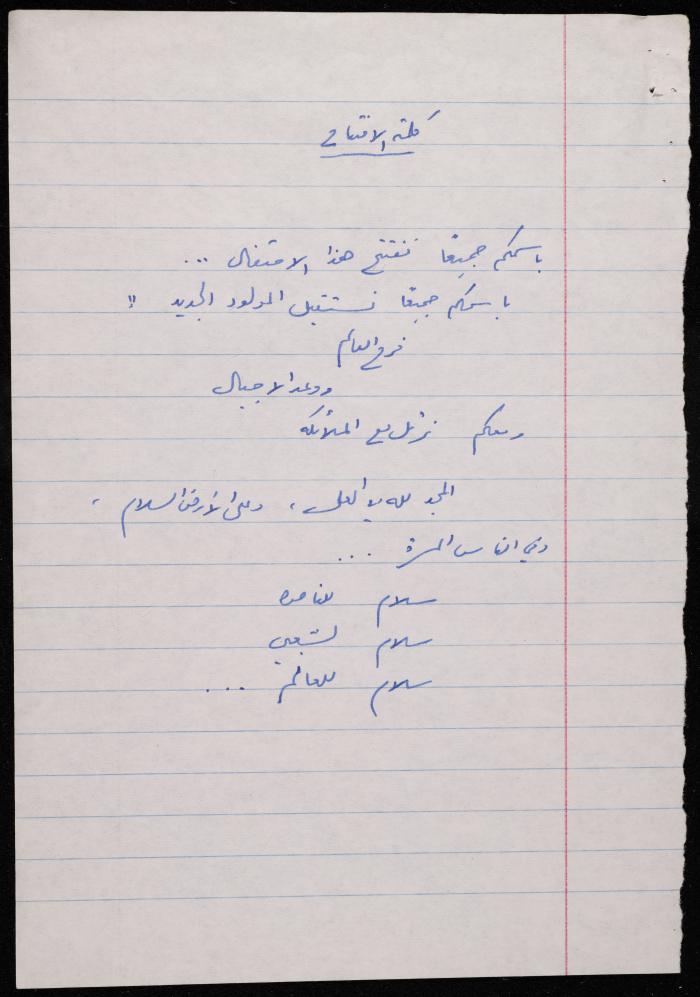 كلمة الافتتاح
باسمكم جميعًا نفتتح هذا الاحتفال ...
باسمكم جميعًا نستقبل المولود الجديد !!
فرح العالم
ووعد الاجيال
ومعكم نرتل مع الملائكة
المجد لله في العلى ، وعلى الأرض السلام ،
وفي الناس المسرة ...
سلام للناصرة
سلام لشعبي
سلام للعالم ...